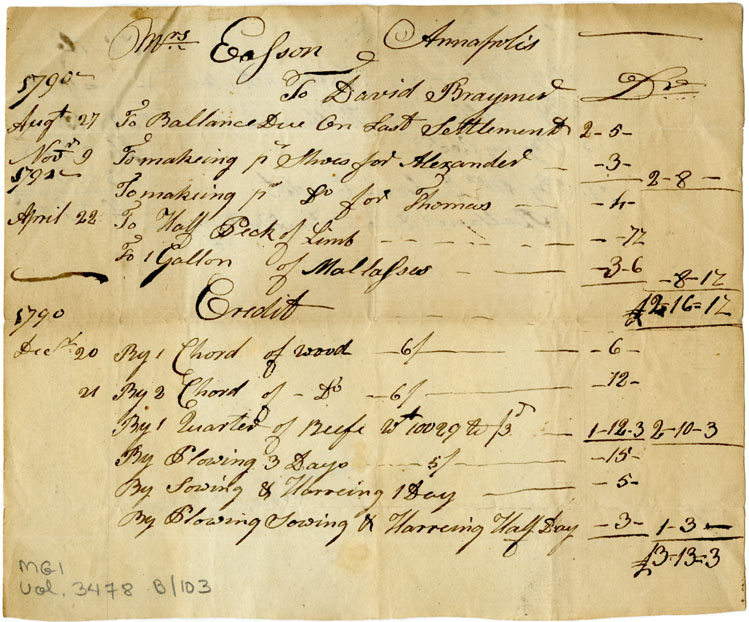 Mrs Easson Annapolis
1790
To David Braymer Dr
Augt 27 To Ballance Due On Last Settlement 2-5-
Novr 9 To makeing pr Shoes for Alexander -3- 2-8-
1791
To makeing pr Do for Thomas -4-
April 22 To Half Peck of Limb -7½
To 1 Gallon of Mallasses -3-6 -8-1½
£2-16-1½
Credit
1790
Decr 20 By 1 Chord of wood -6/ -6-
21 By 2 Chord of - Do -6/ -12-
By 1 Quarter of Beefe Wt 100 29 to /3d 1-12-3 2-10-3
By Plowing 3 Days 5/ -15-
By Sowing & Harreing 1 Day -5-
By Plowing Sowing & Harreing Half Day -3- 1-3-
£3-13-3
MG1
Vol. 3478 B/103